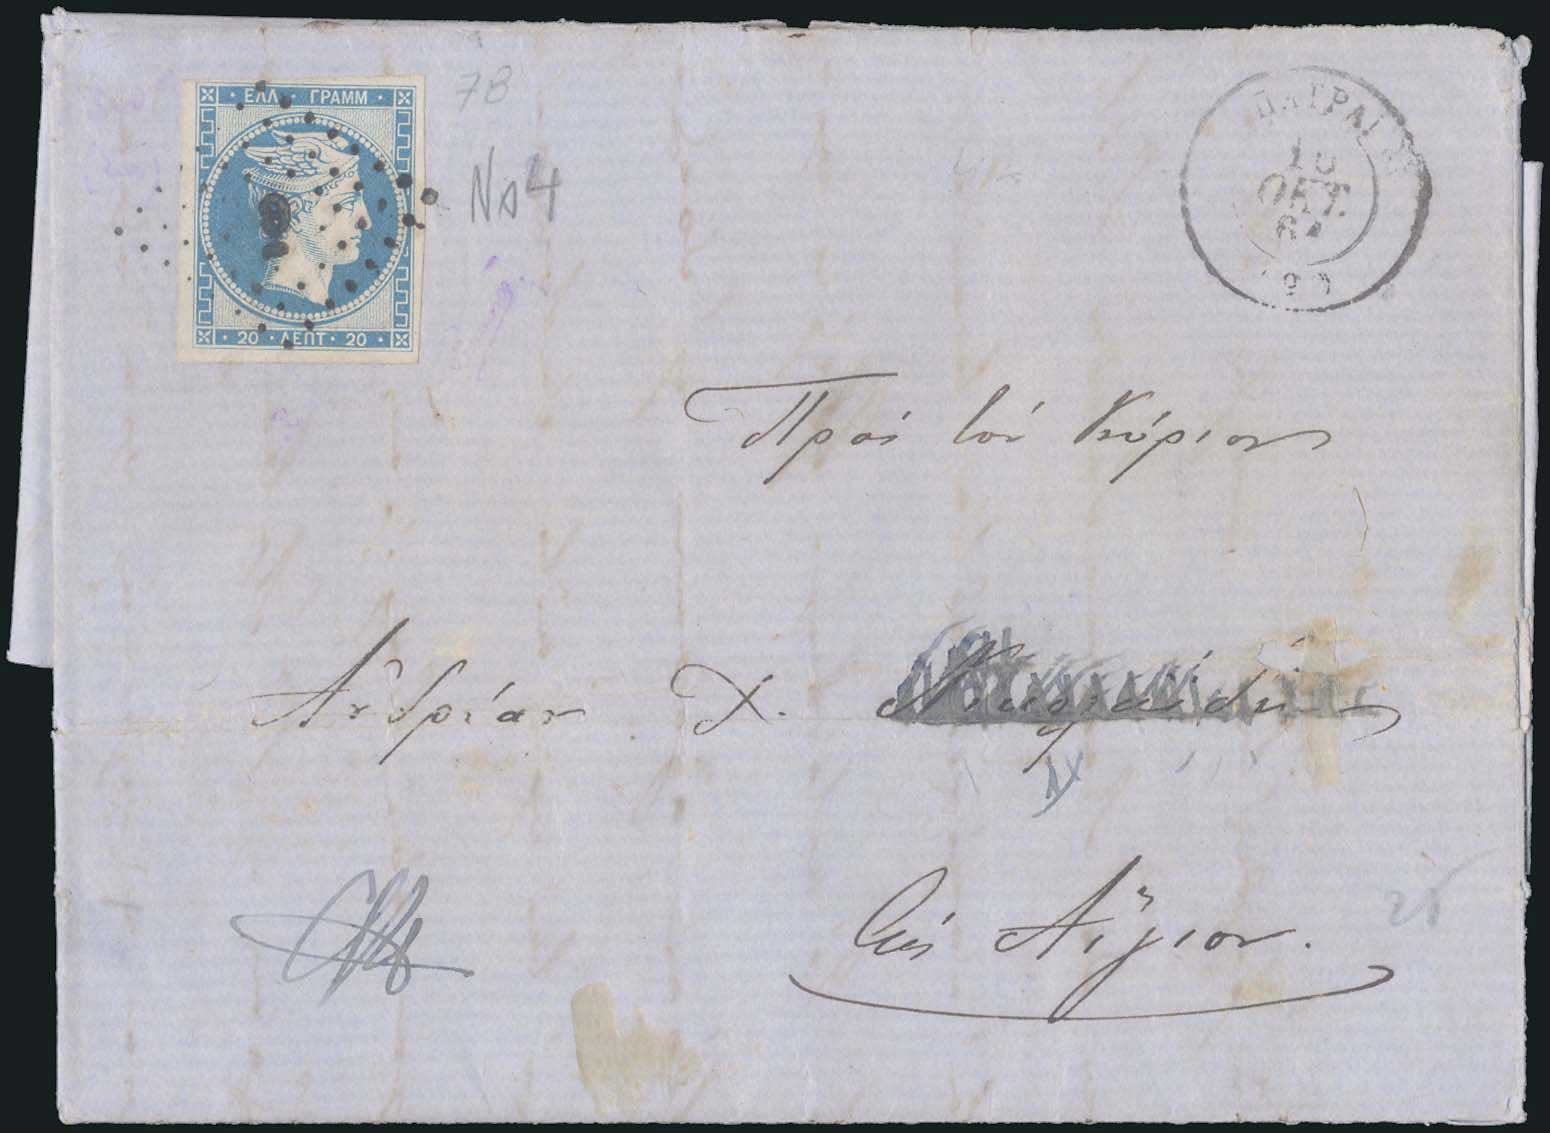 ΕΛΛ · ΓΡΑΜΜ ·
9
· 20 · ΛΕΠΤ · 20 ·
78
No 4
ΠΑΤΡΑΙ
ΟΚΤ.
Πρὸς τὸν Κύριον
Ἀνδρέαν Χ.
Εἰς Αἴγιον.
25